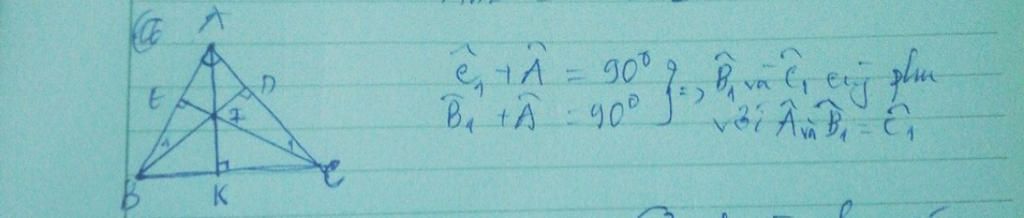 A
E
D
B
K
C
1
1
Ĉ₁ + Â = 90⁰
B̂₁ + Â = 90⁰
} => B̂₁ và Ĉ₁ cùng phụ
với Â và B̂₁ = Ĉ₁